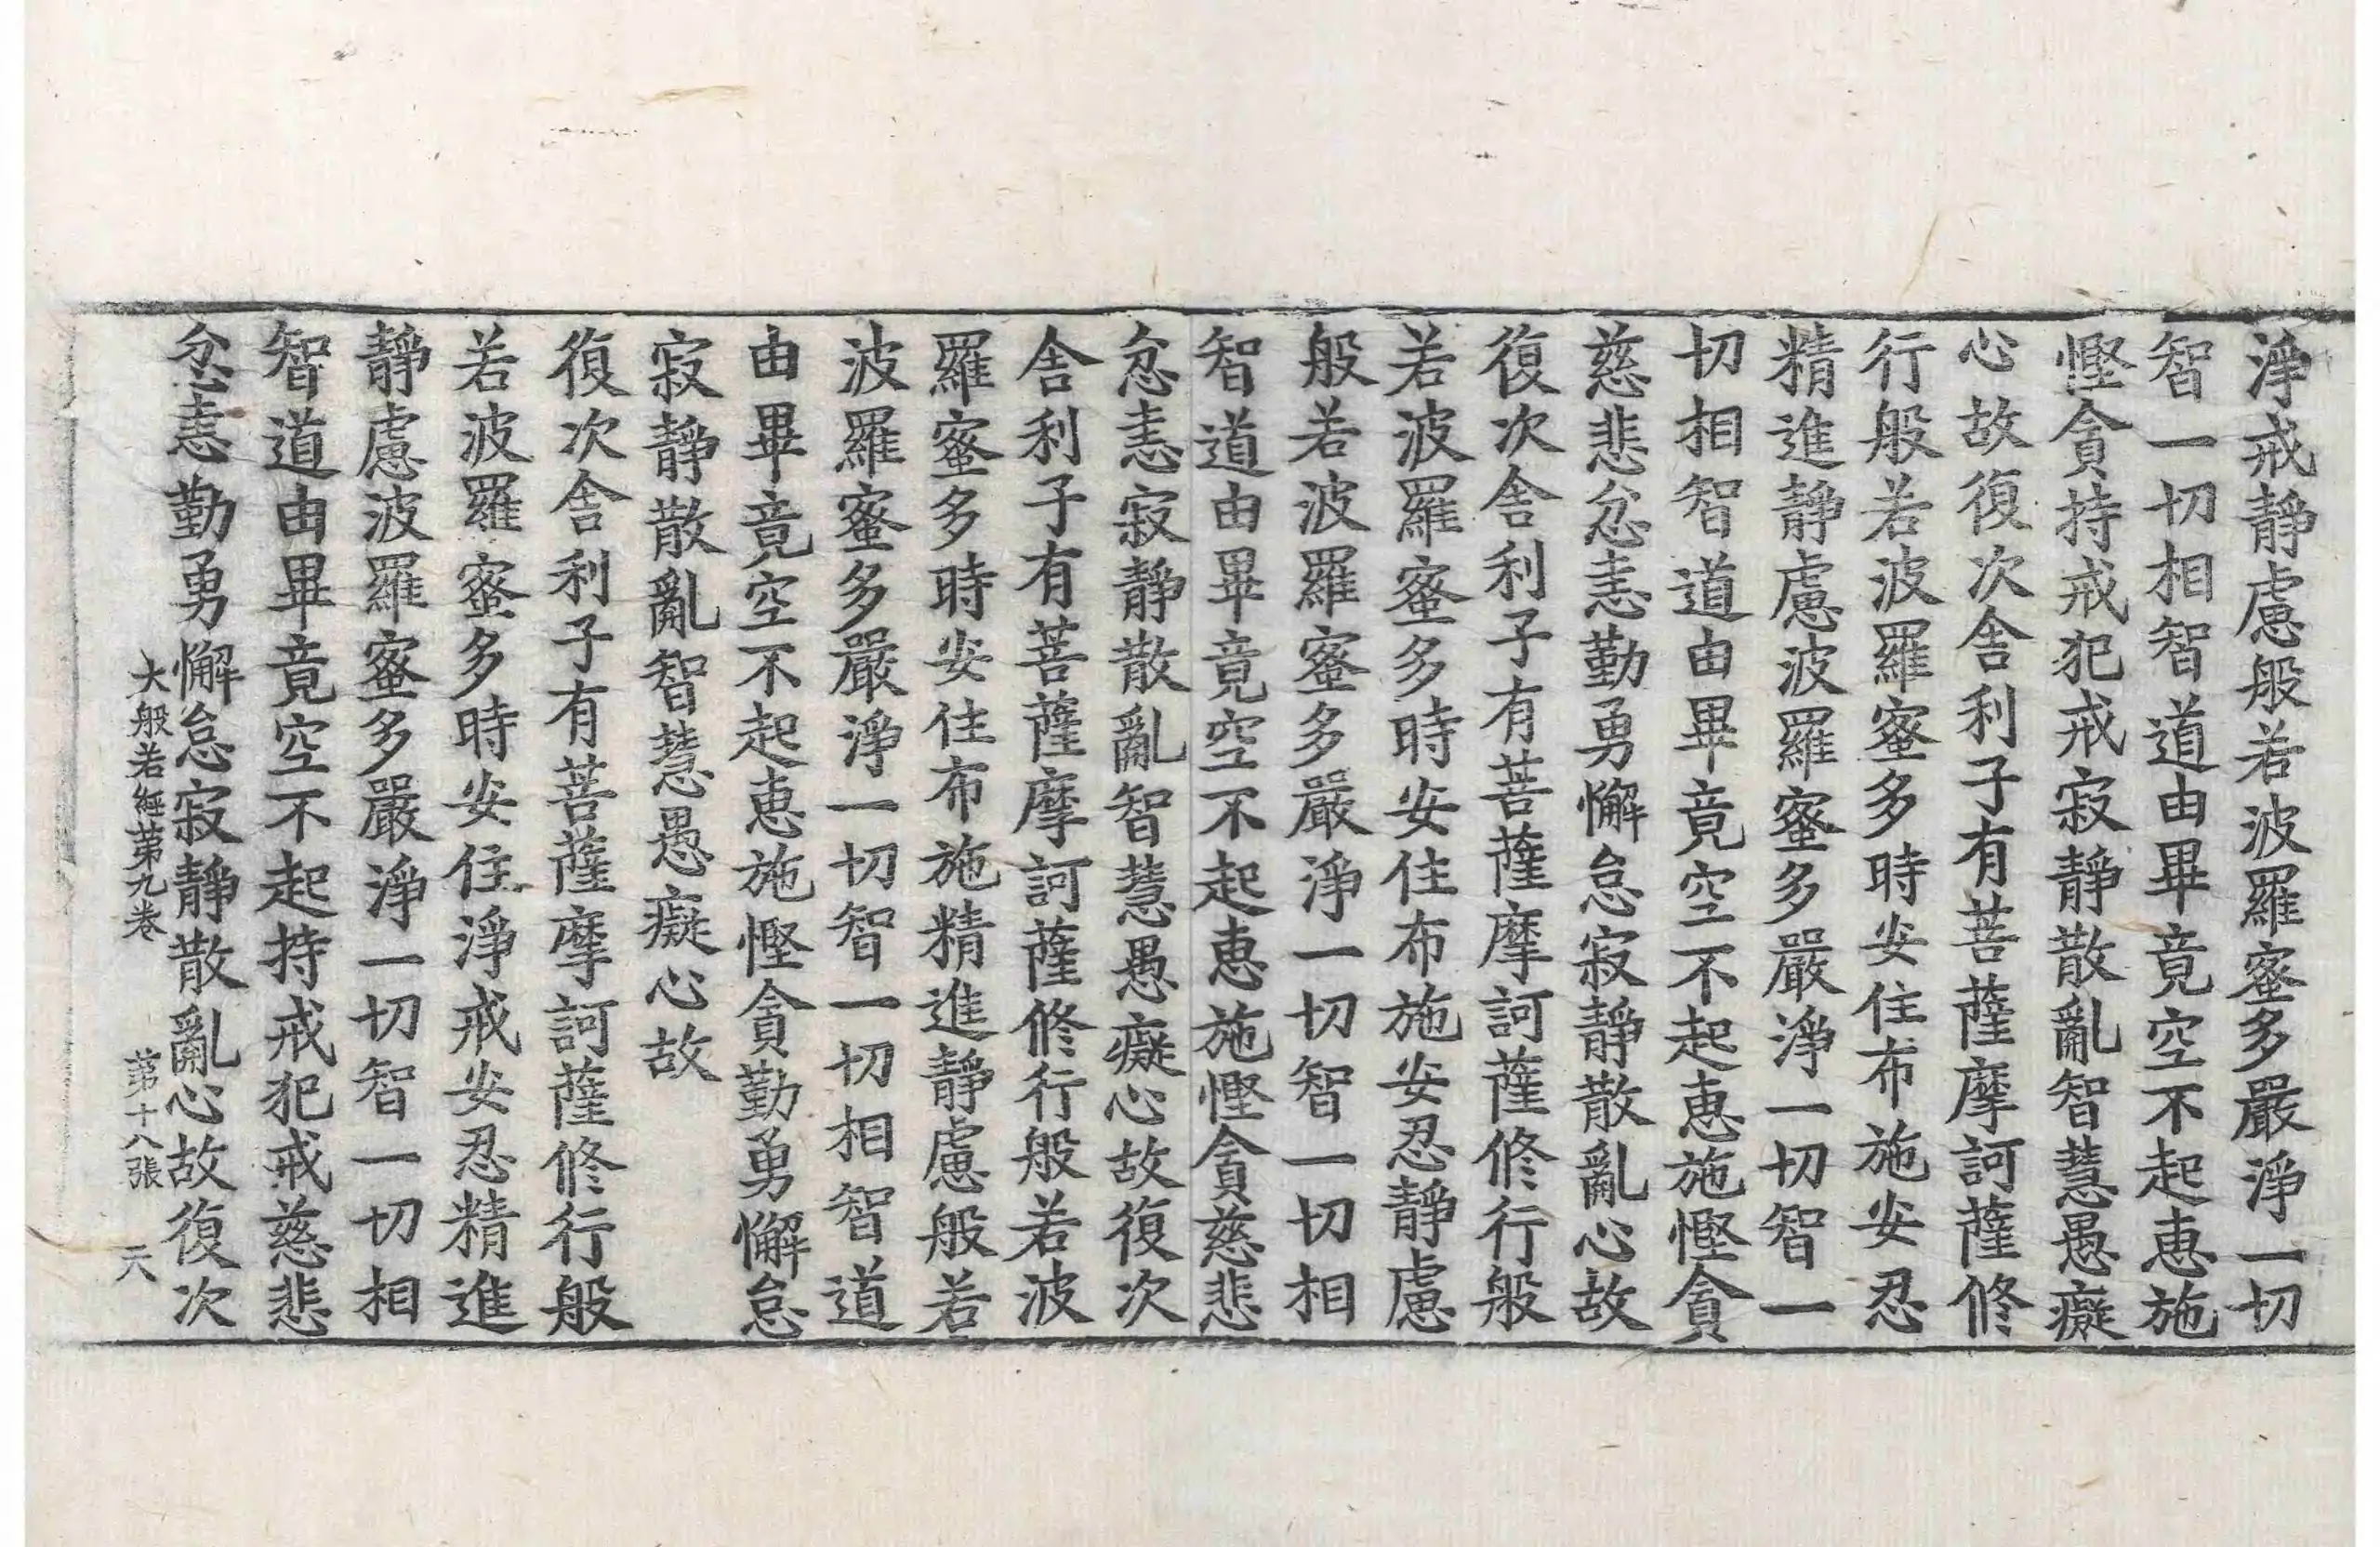 淨戒靜慮般若波羅蜜多嚴淨一切
智一切相智道由畢竟空不起恵施
慳貪持戒犯戒寂靜散亂智慧愚癡
心故復次舍利子有菩薩摩訶薩修
行般若波羅蜜多時安住布施安忍
精進靜慮波羅蜜多嚴淨一切智一
切相智道由畢竟空不起恵施慳貪
慈悲忿恚勤勇懈怠寂靜散亂心故
復次舍利子有菩薩摩訶薩修行般
若波羅蜜多時安住布施安忍靜慮
般若波羅蜜多嚴淨一切智一切相
智道由畢竟空不起恵施慳貪慈悲
忿恚寂靜散亂智慧愚癡心故復次
舍利子有菩薩摩訶薩修行般若波
羅蜜多時安住布施精進靜慮般若
波羅蜜多嚴淨一切智一切相智道
由畢竟空不起恵施慳貪勤勇懈怠
寂靜散亂智慧愚癡心故
復次舍利子有菩薩摩訶薩修行般
若波羅蜜多時安住淨戒安忍精進
靜慮波羅蜜多嚴淨一切智一切相
智道由畢竟空不起持戒犯戒慈悲
忿恚勤勇懈怠寂靜散亂心故復次
大般若經第九卷 第十八張 六